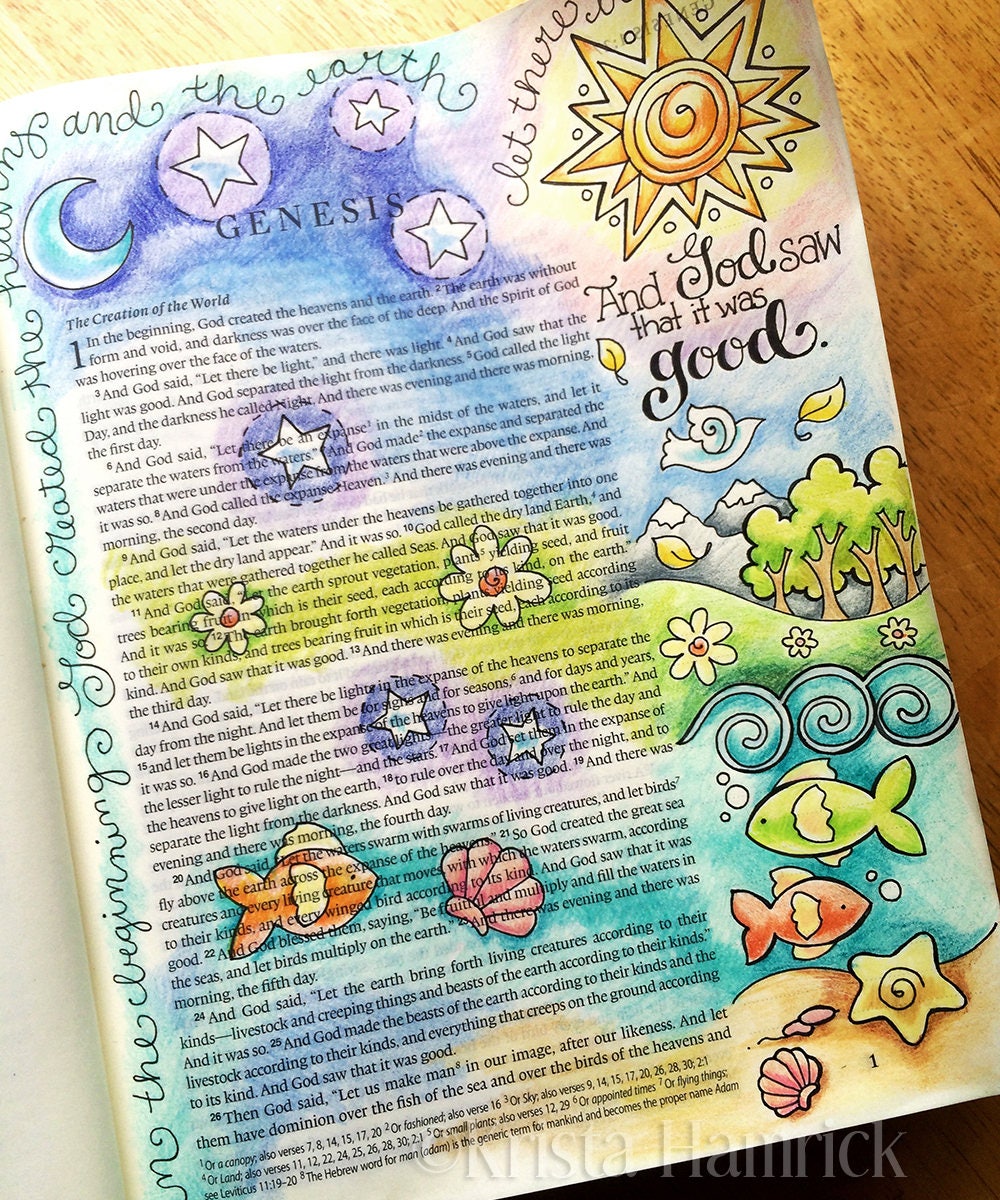 n the beginning God created the heavens and the earth
let there
GENESIS
And God saw
that it was
good.
The Creation of the World
1 In the beginning, God created the heavens and the earth. 2 The earth was without
form and void, and darkness was over the face of the deep. And the Spirit of God
was hovering over the face of the waters.
3 And God said, “Let there be light,” and there was light. 4 And God saw that the
light was good. And God separated the light from the darkness. 5 God called the light
Day, and the darkness he called Night. And there was evening and there was morning,
the first day.
6 And God said, “Let there be an expanse1 in the midst of the waters, and let it
separate the waters from the waters.” 7 And God made2 the expanse and separated the
waters that were under the expanse from the waters that were above the expanse. And
it was so. 8 And God called the expanse Heaven.3 And there was evening and there was
morning, the second day.
9 And God said, “Let the waters under the heavens be gathered together into one
place, and let the dry land appear.” And it was so. 10 God called the dry land Earth,4 and
the waters that were gathered together he called Seas. And God saw that it was good.
11 And God said, “Let the earth sprout vegetation, plants5 yielding seed, and fruit
trees bearing fruit in which is their seed, each according to its kind, on the earth.”
And it was so. 12 The earth brought forth vegetation, plants yielding seed according
to their own kinds, and trees bearing fruit in which is their seed, each according to its
kind. And God saw that it was good. 13 And there was evening and there was morning,
the third day.
14 And God said, “Let there be lights in the expanse of the heavens to separate the
day from the night. And let them be for signs and for seasons,6 and for days and years,
15 and let them be lights in the expanse of the heavens to give light upon the earth.” And
it was so. 16 And God made the two great lights—the greater light to rule the day and
the lesser light to rule the night—and the stars. 17 And God set them in the expanse of
the heavens to give light on the earth, 18 to rule over the day and over the night, and to
separate the light from the darkness. And God saw that it was good. 19 And there was
evening and there was morning, the fourth day.
20 And God said, “Let the waters swarm with swarms of living creatures, and let birds7
fly above the earth across the expanse of the heavens.” 21 So God created the great sea
creatures and every living creature that moves, with which the waters swarm, according
to their kinds, and every winged bird according to its kind. And God saw that it was
good. 22 And God blessed them, saying, “Be fruitful and multiply and fill the waters in
the seas, and let birds multiply on the earth.” 23 And there was evening and there was
morning, the fifth day.
24 And God said, “Let the earth bring forth living creatures according to their
kinds—livestock and creeping things and beasts of the earth according to their kinds.”
And it was so. 25 And God made the beasts of the earth according to their kinds and the
livestock according to their kinds, and everything that creeps on the ground according
to its kind. And God saw that it was good.
26 Then God said, “Let us make man8 in our image, after our likeness. And let
them have dominion over the fish of the sea and over the birds of the heavens and
1 Or a canopy; also verses 7, 8, 14, 15, 17, 20 2 Or fashioned; also verse 16 3 Or Sky; also verses 9, 14, 15, 17, 20, 26, 28, 30; 2:1
4 Or Land; also verses 11, 12, 22, 24, 25, 26, 28, 30; 2:1 5 Or small plants; also verses 12, 29 6 Or appointed times 7 Or flying things;
see Leviticus 11:19–20 8 The Hebrew word for man (adam) is the generic term for mankind and becomes the proper name Adam
1
©Krista Hamrick